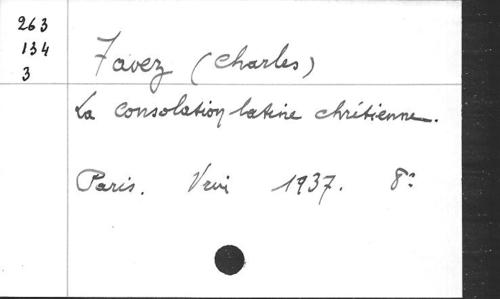 263
134
3
Favez (Charles)
La consolation latine chrétienne.
Paris. Vrin 1937. 8°